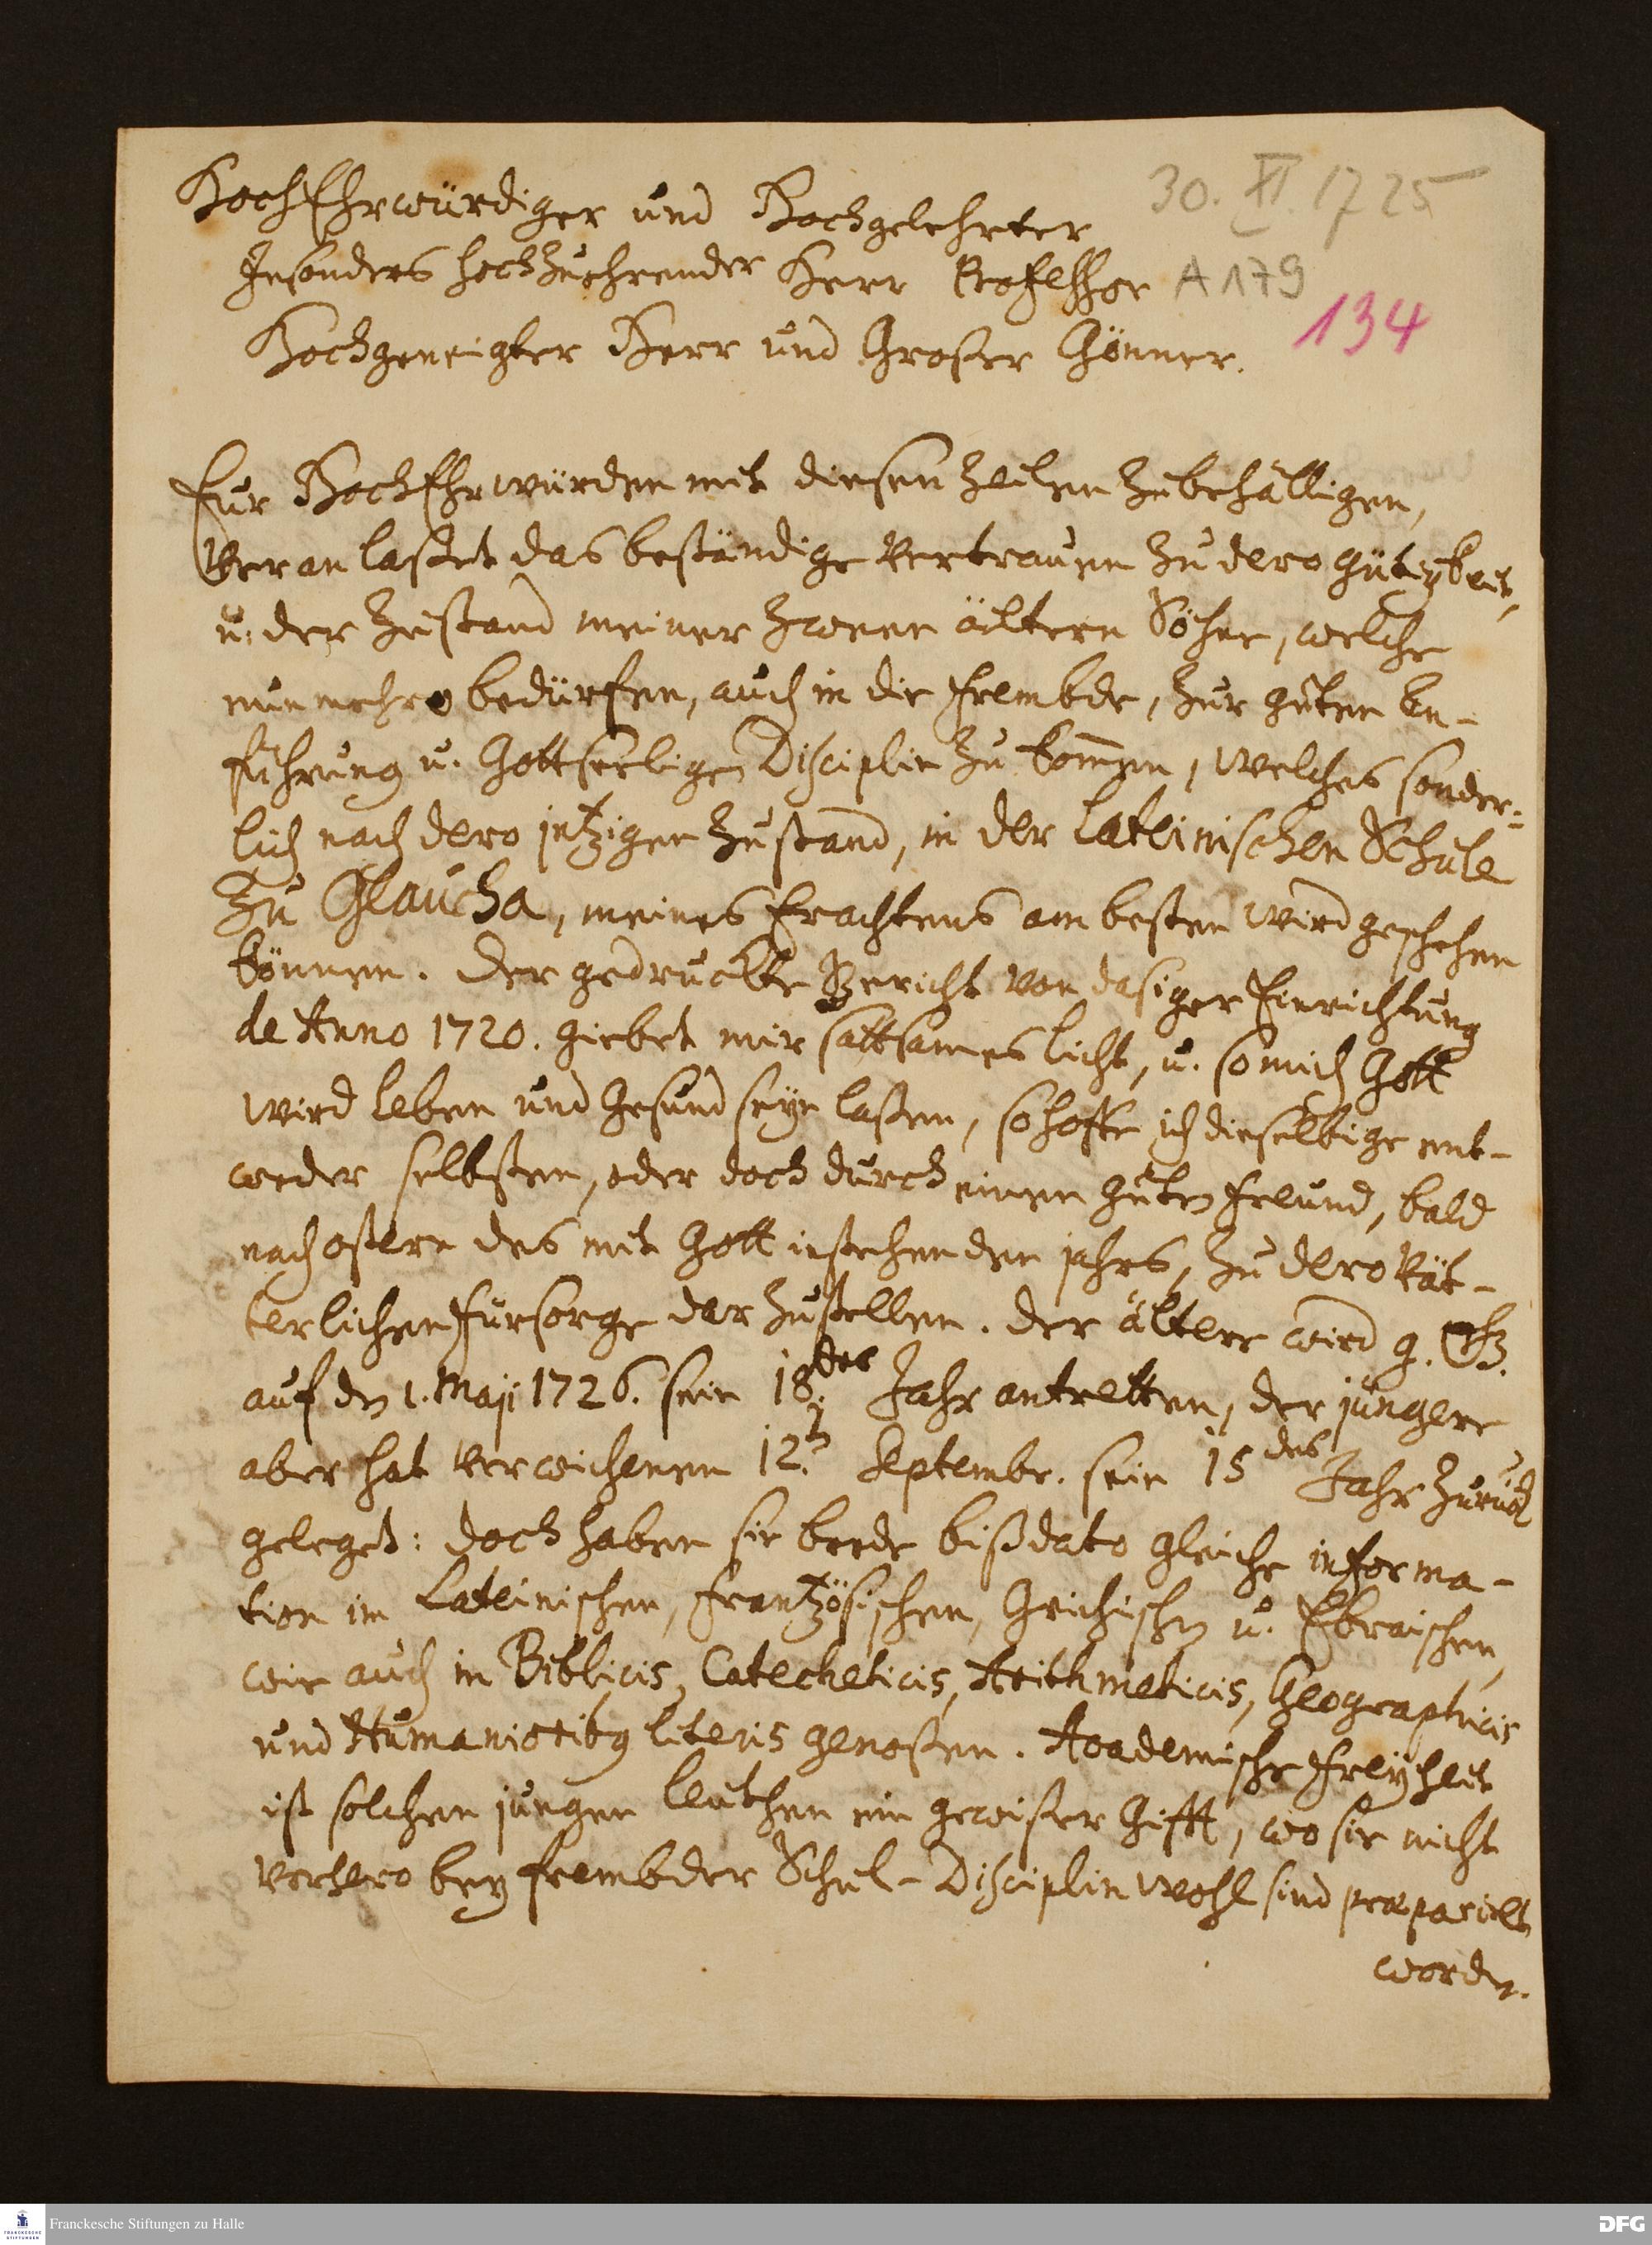 HochEhrwürdiger und Hochgelehrter
30. XI. 1725
Insonders hochzuehrender Herr Professor
A 179
134
Hochgeneigter Herr und Großer Gönner.
Eur HochEhrwürden mit diesen Zeilen zu behälligen,
Veranlaßet das beständige Vertrauen zu dero gütigkeit,
u. der Zustand meiner zween ältern Söhne, welche
nunmehro bedürfen, auch in die Frembde, zur guten An-
führung u. Gottseeligen Disciplin zu kom̅en, welches sonder-
lich nach dero jetzigen Zustand, in der Lateinischen Schule
zu Glaucha, meines Erachtens am besten wird geschehen
können. Der gedruckte Bericht von dasiger Einrichtung
de Anno 1720. giebet mir sattsames licht, u. so mich Gott
wird leben und gesund seyn laßen, so hoffe ich dieselbige ent-
weder selbsten, oder doch durch einen guten Freund, bald
nach ostern des mit Gott instehenden jahrs, zu dero Vät-
terlichen Fürsorge darzustellen. Der ältere wird g. G.
auf den 1. Maji 1726. sein 18.des Jahr antretten, der jüngere
aber hat verwichenen 12.t Septembr. sein 15des Jahr zurück
geleget: doch haben sie beede biß dato gleiche informa-
tion im Lateinischen, Frantzösischen, Grichischen u. Ebraischen,
wie auch in Biblicis, Catecheticis, Arithmeticis, Geographicis
und Humanioribg literis genoßen. Academische Freyheit
ist solchen jungen leuthen ein gewißer Gifft, wo sie nicht
vorhero bey frembder Schul-Disciplin wohl sind præpariret
worden.
Franckesche Stiftungen zu Halle
FRANCKESCHE STIFTUNGEN
DFG